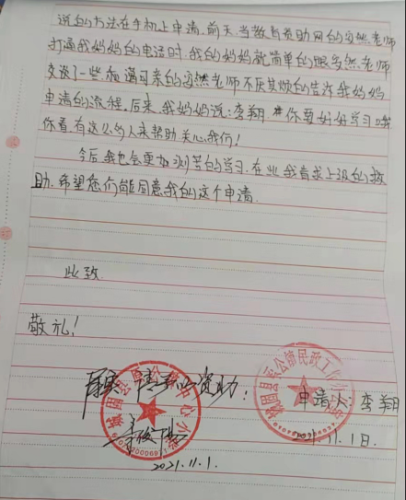 说的方法在手机上申请。前天，当教育资助网的安然老师
打通我妈妈的电话时，我的妈妈就简单的跟安然老师
交谈了一些，和蔼可亲的安然老师不厌其烦的告诉我妈妈
申请的流程。后来，我妈妈说：李翔 你要好好学习哦
你看有这么多人来帮助关心我们！
今后我也会更加刻苦的学习。在此我请求上级的救
助，希望您们能同意我的这个申请。
此致
敬礼！
情况 资助：
申请人：李翔
2021.11.1日
2021.11.1.